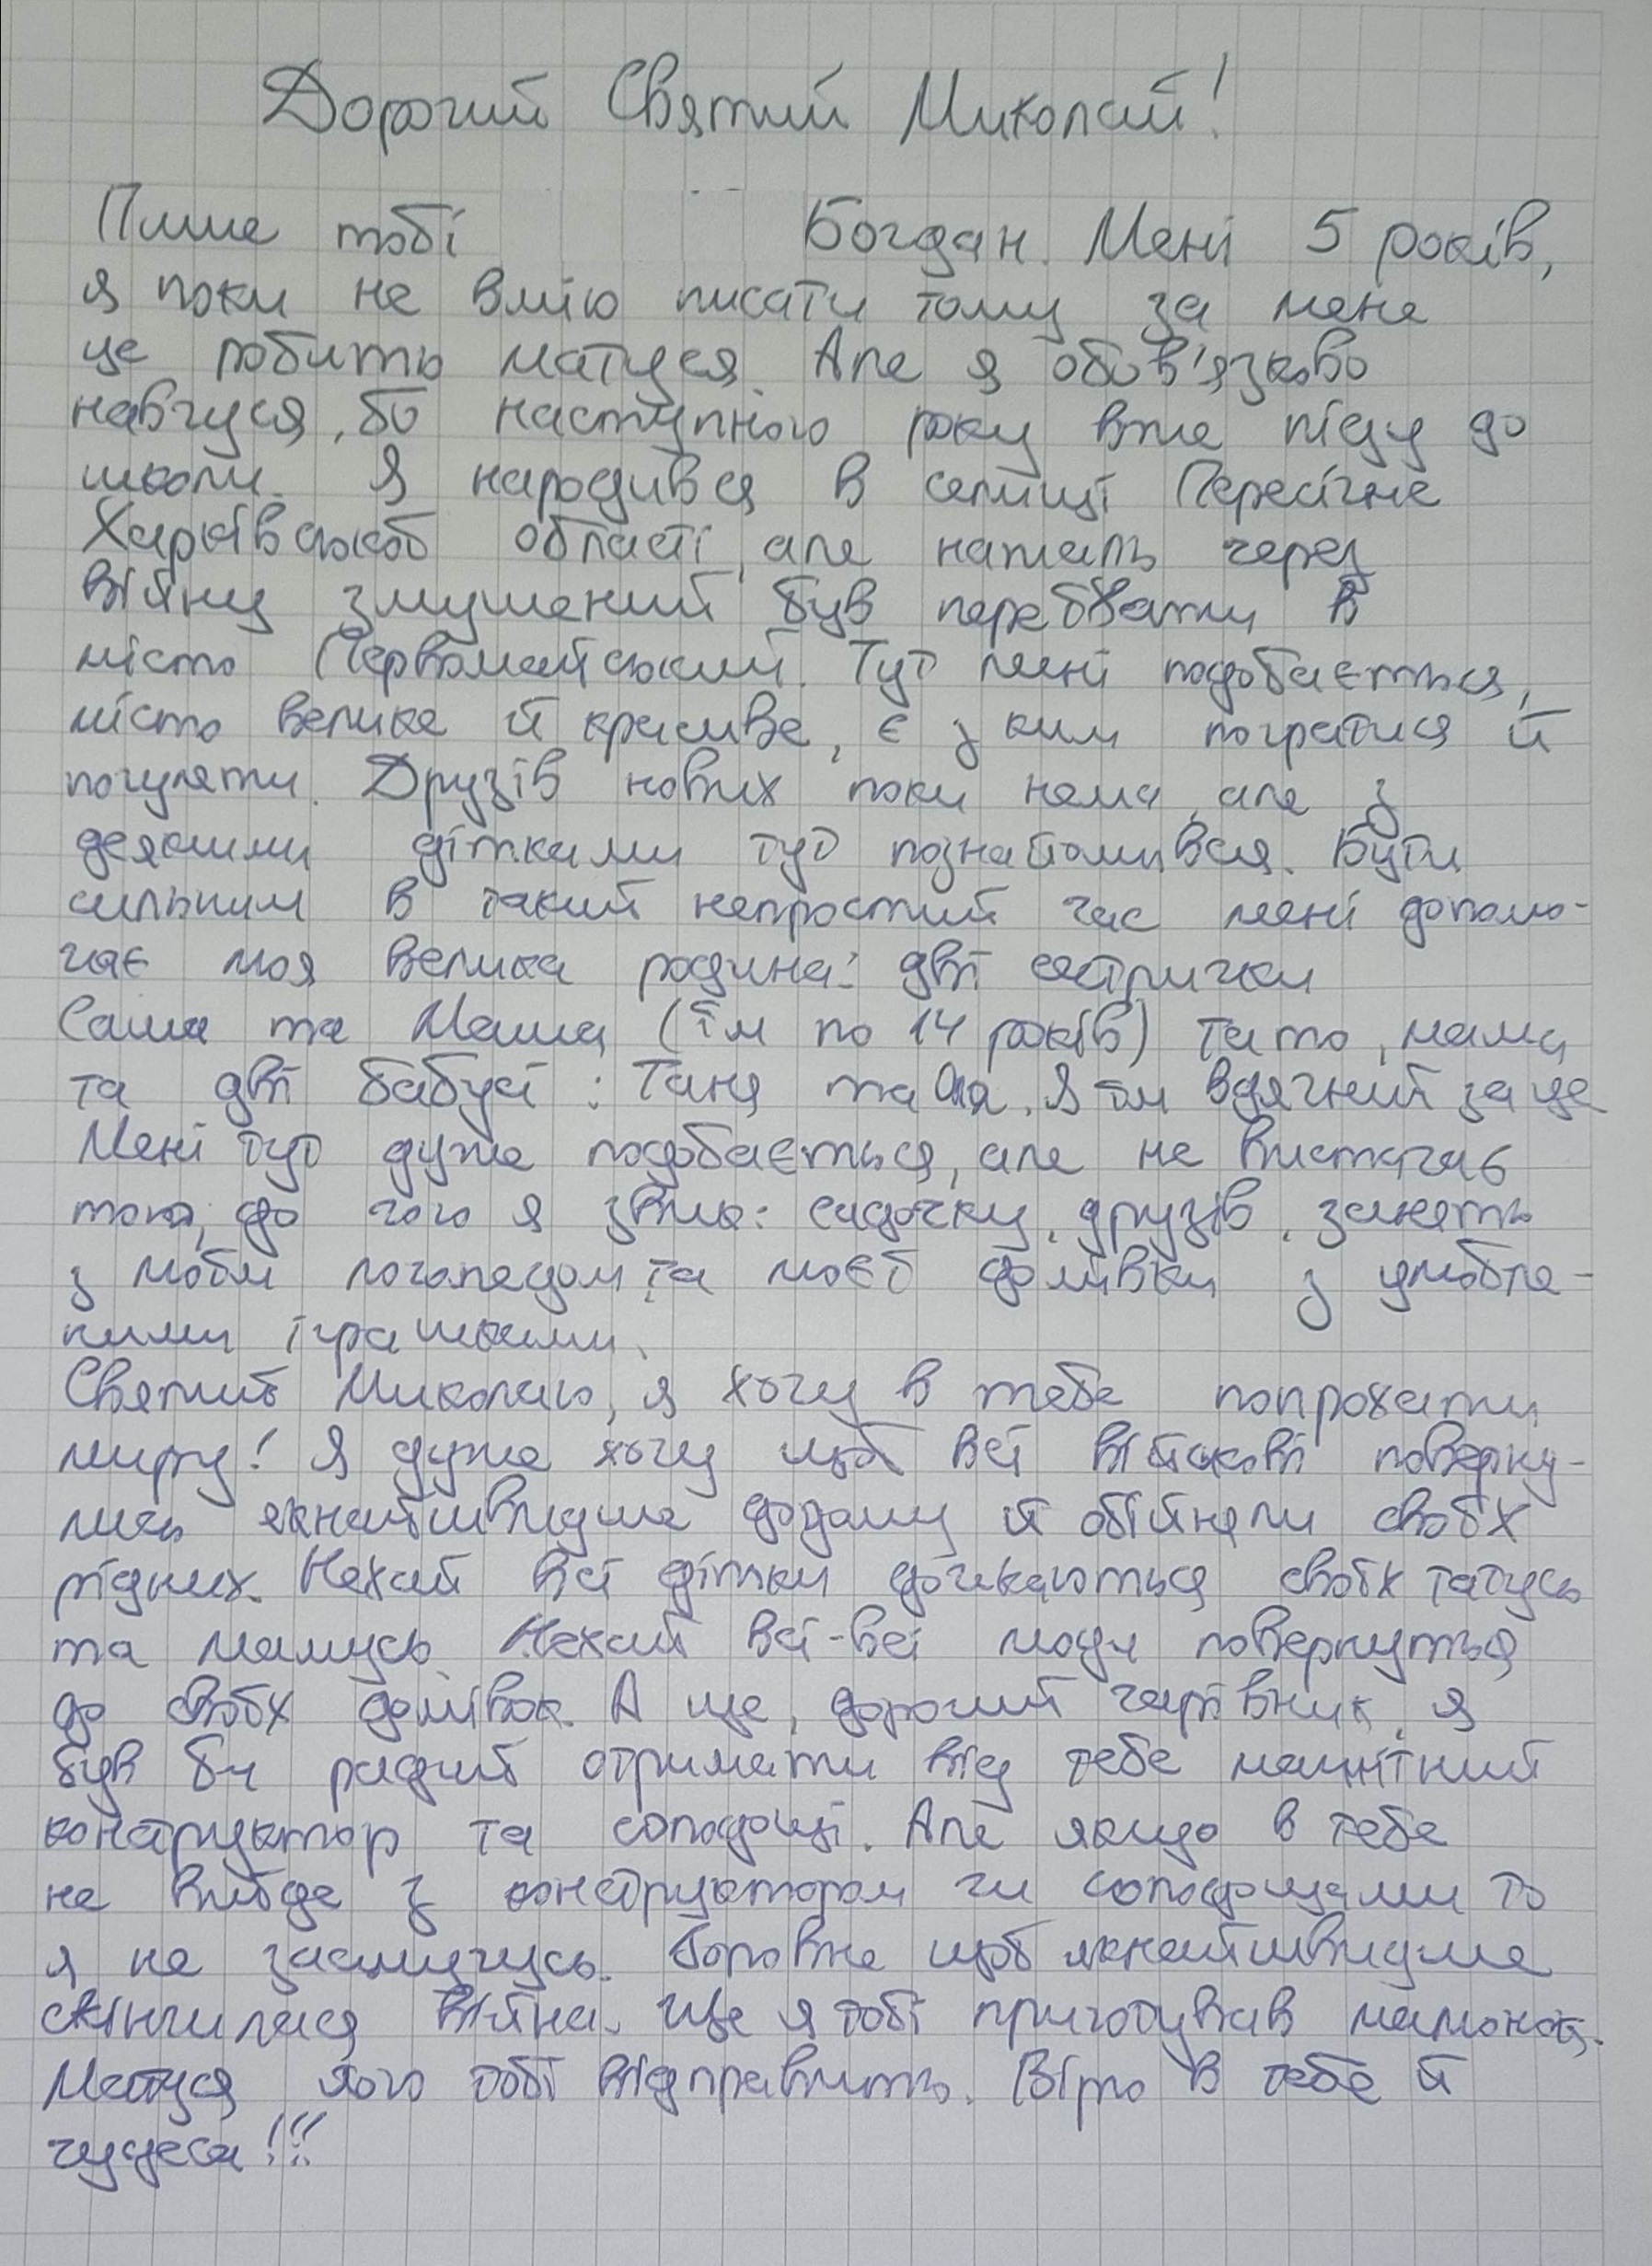 Дорогий Святий Миколай!
Пише тобі Богдан. Мені 5 років,
я поки не вмію писати тому за мене
це робить матуся. Але я обов'язково
навчуся, бо наступного року вже піду до
школи. Я народився в селищі Пересічне
Харківської області, але нажаль через
війну змушений був переїхати в
місто Первомайський. Тут мені подобається,
місто велике й красиве, є з ким погратися й
погуляти. Друзів нових поки нема, але з
деякими дітками тут познайомився. Бути
сильним в такий непростий час мені допомо-
гає моя велика родина: дві сестрички
Саша та Маша (їм по 14 років) тато, мама
та дві бабусі: Таня та Оля. Я їм вдячний за це
Мені тут дуже подобається, але не вистачає
того, до чого я звик: садочку, друзів, занять
з моїм логопедом та моєї домівки з улюбле-
ними іграшками.
Святий Миколаю, я хочу в тебе попрохати
миру! Я дуже хочу щоб всі військові поверну-
лись якнайшвидше додому й обійняли своїх
рідних. Нехай всі дітки дочекаються своїх татусь
та мамусь. Нехай всі-всі люди повернуться
до своїх домівок. А ще, дорогий чарівник, я
був би радий отримати від тебе магнітний
конструктор та солодощі. Але якщо в тебе
не вийде з конструктором чи солодощами то
я не засмучусь. Головне щоб якнайшвидше
скінчилася війна. Ще я тобі приготував малюнок.
Матуся його тобі відправить. Вірю в тебе й
чудеса!!!